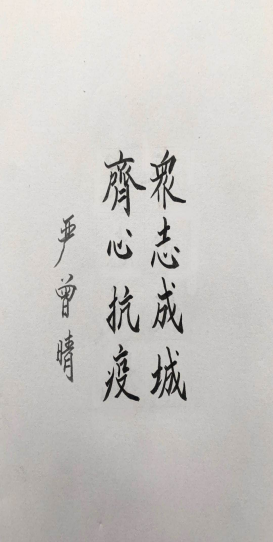 眾志成城
齊心抗疫
严曾晴